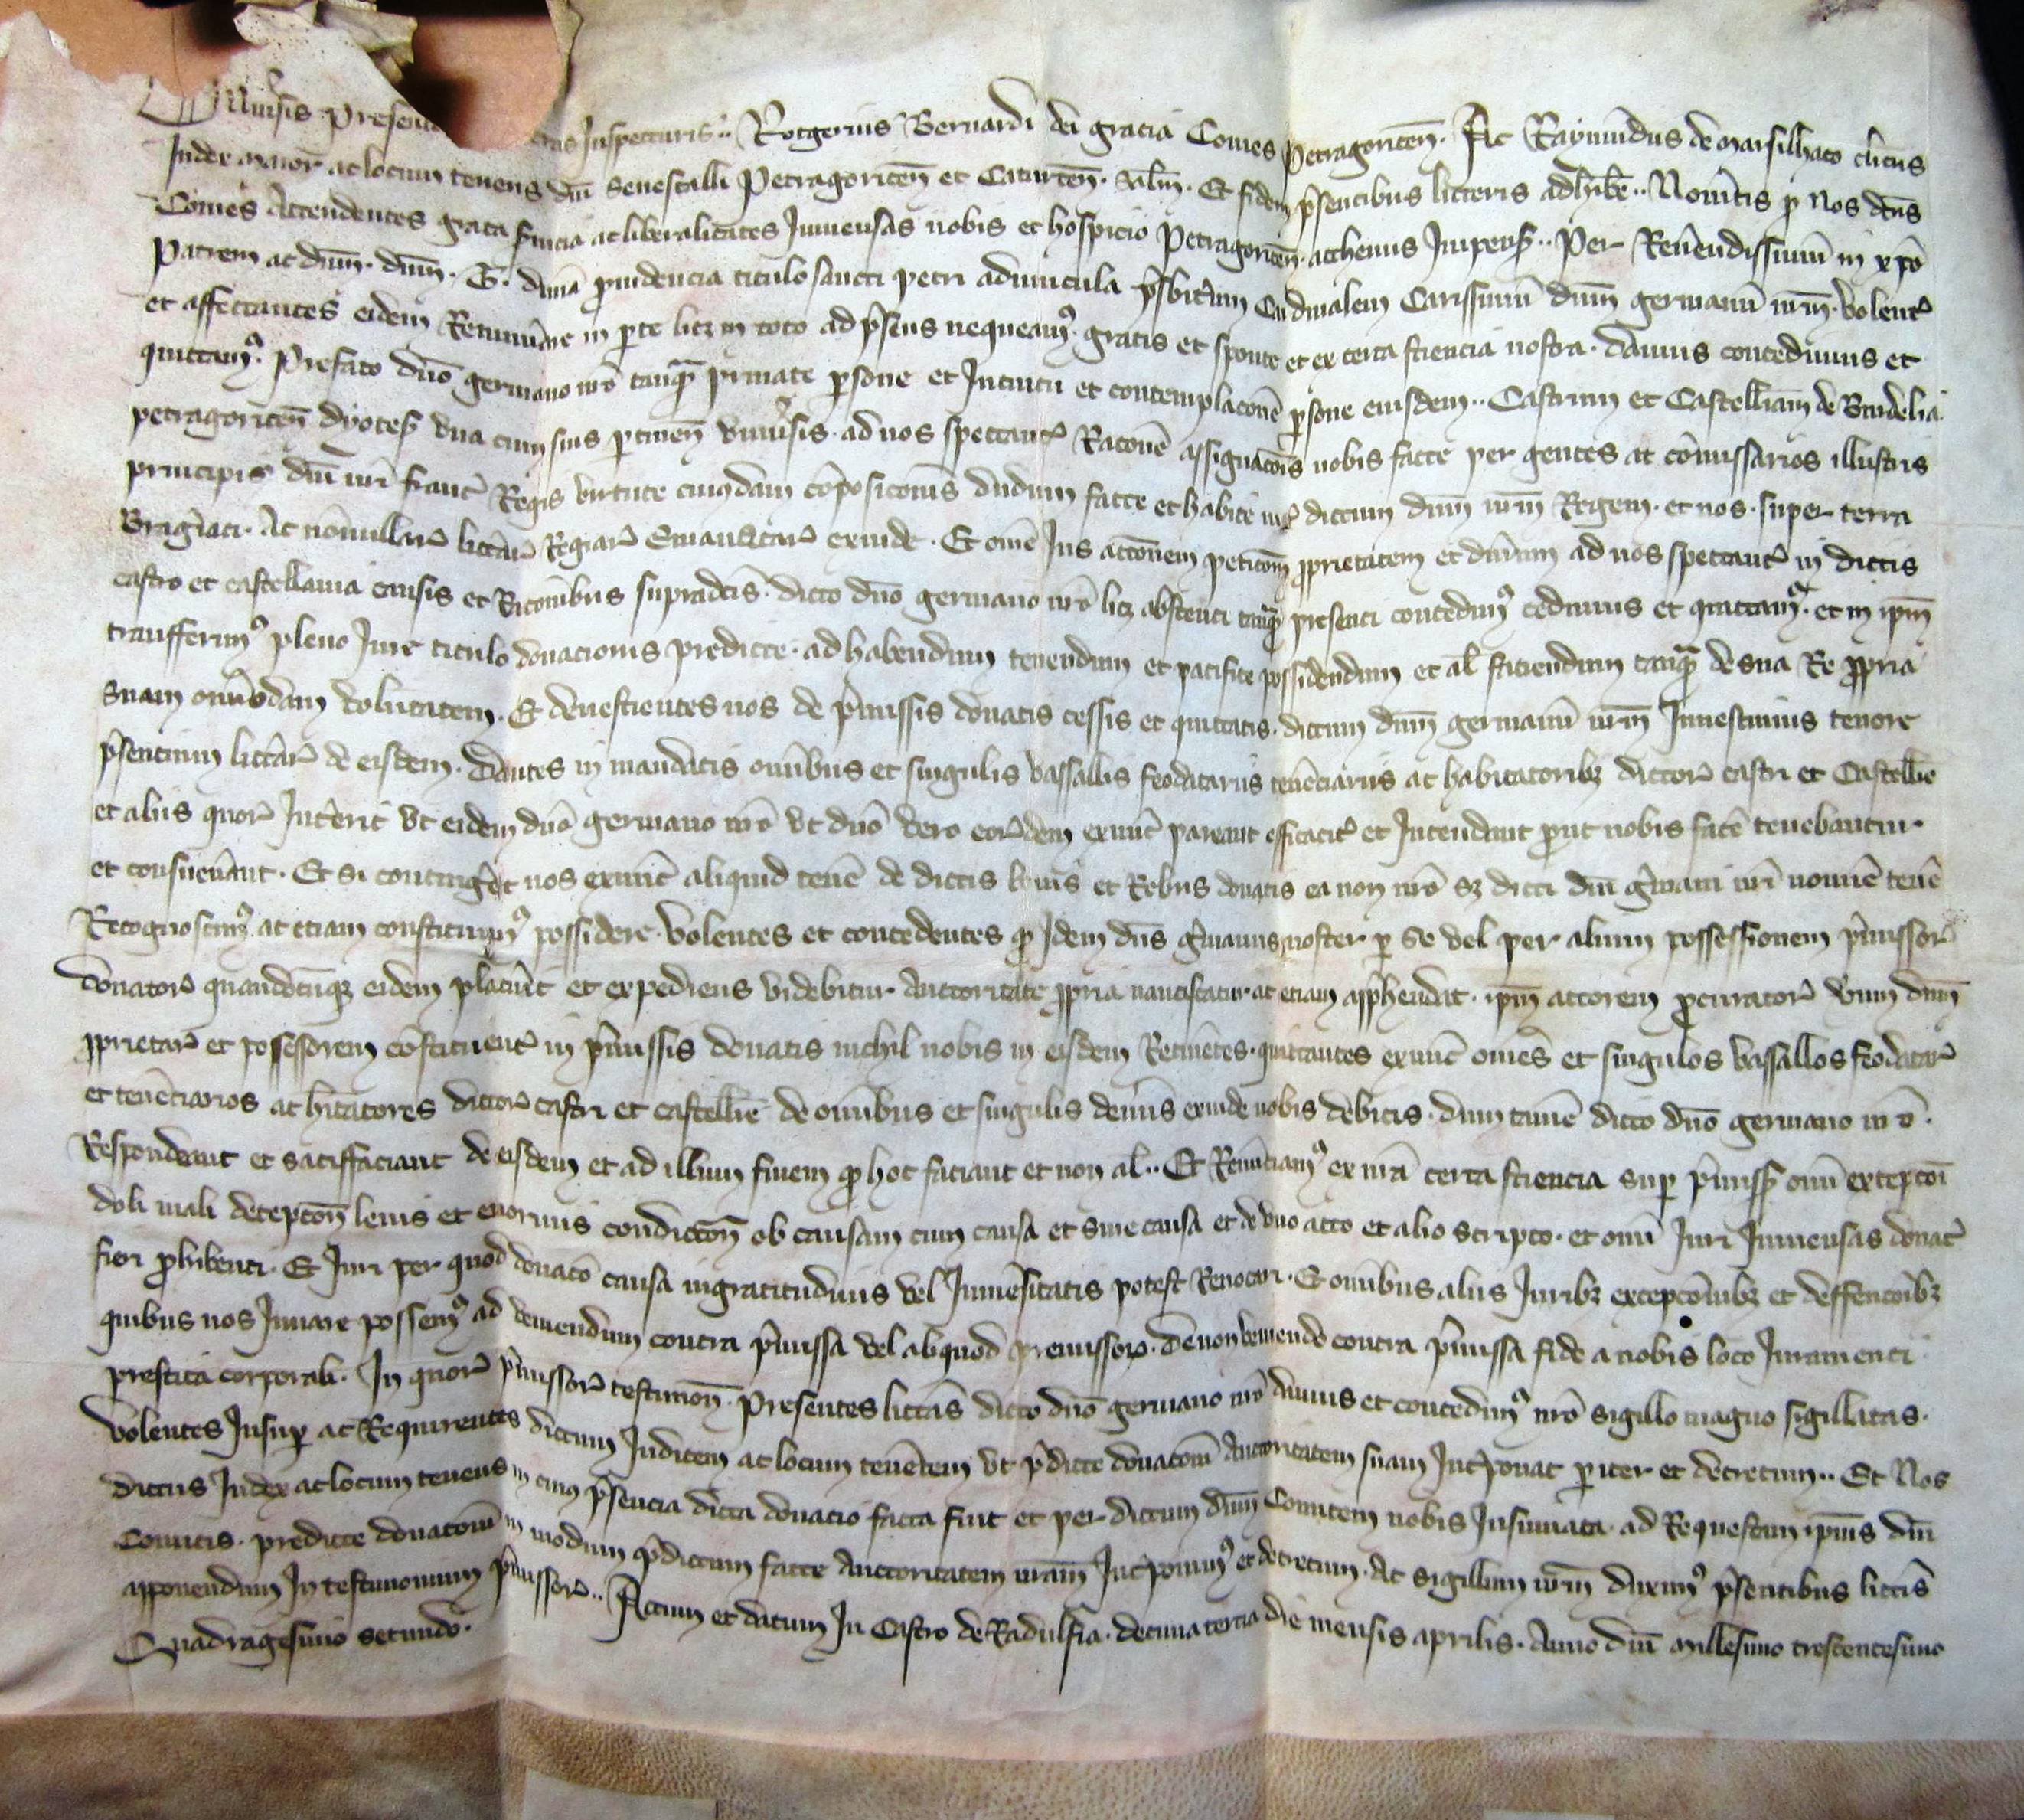 Universis presen tras Inspecturis·· Rotgerius Bernardi dei gracia Comes petragoricen̄· Ac Raymūdus de marsilhaco cl̄icus
Judex maior ac locum tenens dn̄i Senescalli Petragoricen̄ et Caturcen̄· Sal̄m· Et fidem p̄sentibus litteris adhib̄e·· Nov̄itis q̄ Nos dn̄s
Comes Attendentes grata s̄vicia ac liberalitates Jmmensas nobis et hospicio Petragoricen̄· acthenus Jmpens̄·· Per Rev̄endissimū in xp̄o
Patrem ac dn̄m· dn̄m· T· divīa prudencia titulo sancti petri advincula p̄sbit̄um Cardinalem Carissimū dn̄m germanū nr̄m· volent̄
et affectantes eidem Remun̄are in p̄te licz in toto ad p̄sens nequeamꝰ· gratis et sponte et ex certa sciencia nostra· damus concedimus et
quittamꝰ· Prefato dn̄o germano nr̄o tanqᷓ private p̄sone et Jntuitu et contemplacōne p̄sone eiusdem·· Castrum et Castellāiam de
petragoricen̄ dyotes̄ una cum suis p̄tinen̄ univ̄sis· ad nos spectant̄ Racōne assignacōis nobis facte per gentes ac cōmissarios illustris
principis dn̄i nr̄i franc̄ Regis virtute cuiusdam cōposicōnis dudum facte et habite int̄ dictum dn̄m nr̄m Regem· et nos· super terra
Braḡiaci· Ac nōnullar̄ litt̄ar̄ Regiar̄ Emanatar̄ exinde· Et om̄e Jus accōnem peticōm ꝓprietatem et dn̄ium ad nos spectant̄ in dictis
castro et castellania causis et Racōnibus supradc̄is· dicto dn̄o germano nr̄o licz absenti tanqᷓ presenti concedimꝰ cedimus et quittamꝰ· et in ip̄m
transferimꝰ pleno Jure titulo donacionis predicte· ad habendum tenendum et pacifice possidendum et al̄ faciendum tanqᷓ de sua Re ꝓpria
Suam om̄imodam voluntatem· Et devestientes nos de p̄missis donatis cessis et quittatis· dictum dn̄m germanū nr̄m Jnvestimus tenore
p̄sentium litt̄ar̄ de eisdem· Dantes in mandatis om̄ibus et singulis vassallis feodatariis tenēciariis ac habitatoribꝫ dictor̄ castri et Castell̄ie
et aliis quor̄ Jnt̄erit ut eidem dn̄o germano nr̄o ut dn̄o vero eor̄dem exnūc pareant efficacit̄ et Jntendant ꝓut nobis fac̄e tenebantur
et consuev̄ant· Et si continḡet nos exnūc aliquid ten̄e de dictis bonis et Rebus donatis ea non nr̄o sꝫ dicti dn̄i ḡmani nr̄i nomīe ten̄e
Recognoscimꝰ ac etiam constituimꝰ possidere· Volentes et concedentes q̄ Jdem dn̄s ḡmanus noster p̄ se vel per alium possessionem p̄missor̄
donator̄ quandocūqꝫ eidem plac̄uit et expediens videbitur Auctoritate ꝓpria nanciscatur ac etiam app̄hendat· ip̄m actorem ꝓcurator̄ verum dn̄m
ꝓprietar̄ et possessorem cōstituent̄ in p̄missis donatis nichil nobis in eisdem Retinētes· quittantes exnūc om̄es et singulos vassallos feodatar̄
et tenēciarios ac h̄itatores dictor̄ castri et castell̄ie de om̄ibus et singulis devīis exinde nobis debitis· dum tamē dicto dn̄o germano nr̄o·
Respondeant et satisffaciant de eisdem et ad illum finem q̄ hoc faciant et non al̄·· Et Renūciamꝰ ex nr̄a certa sciencia sup̄ p̄miss̄ om̄i excepcōi
doli mali decepcōn̄ levis et enormis condiccōn̄ ob causam cum causa et sine causa et de uno acto et alio scripto· et om̄i Juri Jmmensas donac̄
fieri ꝓhibenti· Et Juri per quod donacō causa ingratitudinis vel Jmmēsitatis potest Revocari· Et om̄ibus aliis Juribꝫ excepcōnibꝫ et deffencōibꝫ
quibus nos Juvare possemꝰ ad veniendum contra p̄missa vel aliquod premissor̄· De non veniendo contra p̄missa fide a nobis loco Juramenti·
prestita corporali· In quor̄ p̄missor̄ testimon̄· Presentes litt̄as dicto dn̄o germano nr̄o damus et concedimꝰ nr̄o sigillo magno sigillatas·
Volentes Jnsup̄ ac Requirentes dictum Judicem ac locum tenētem ut p̄dicte donacōni Auctoritatem suam Jnt̄ponat p̄iter et decretum·· Et Nos
dictus Judex ac locum tenens in cuius p̄sencia dicta donacio facta fuit et per dictum dn̄m Comitem nobis Jnsinuata· ad Requestam ip̄ius dn̄i
Comitis· predicte donacōni in modum p̄dictum facte Auctoritatem nr̄am Jnt̄ponimꝰ et decretum· Ac sigillum nr̄m duximꝰ p̄sentibus litt̄is
apponendum In testimonium p̄missor̄·· Actum et datum In Castro de Radulfia· decima tercia die mensis aprilis· Anno dn̄i millesimo trescentesimo
Quadragesimo secundo·